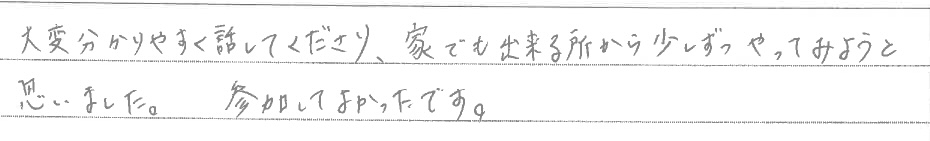 大変分かりやすく話してくださり、家でも出来る所から少しずつやってみようと
思いました。　参加してよかったです。